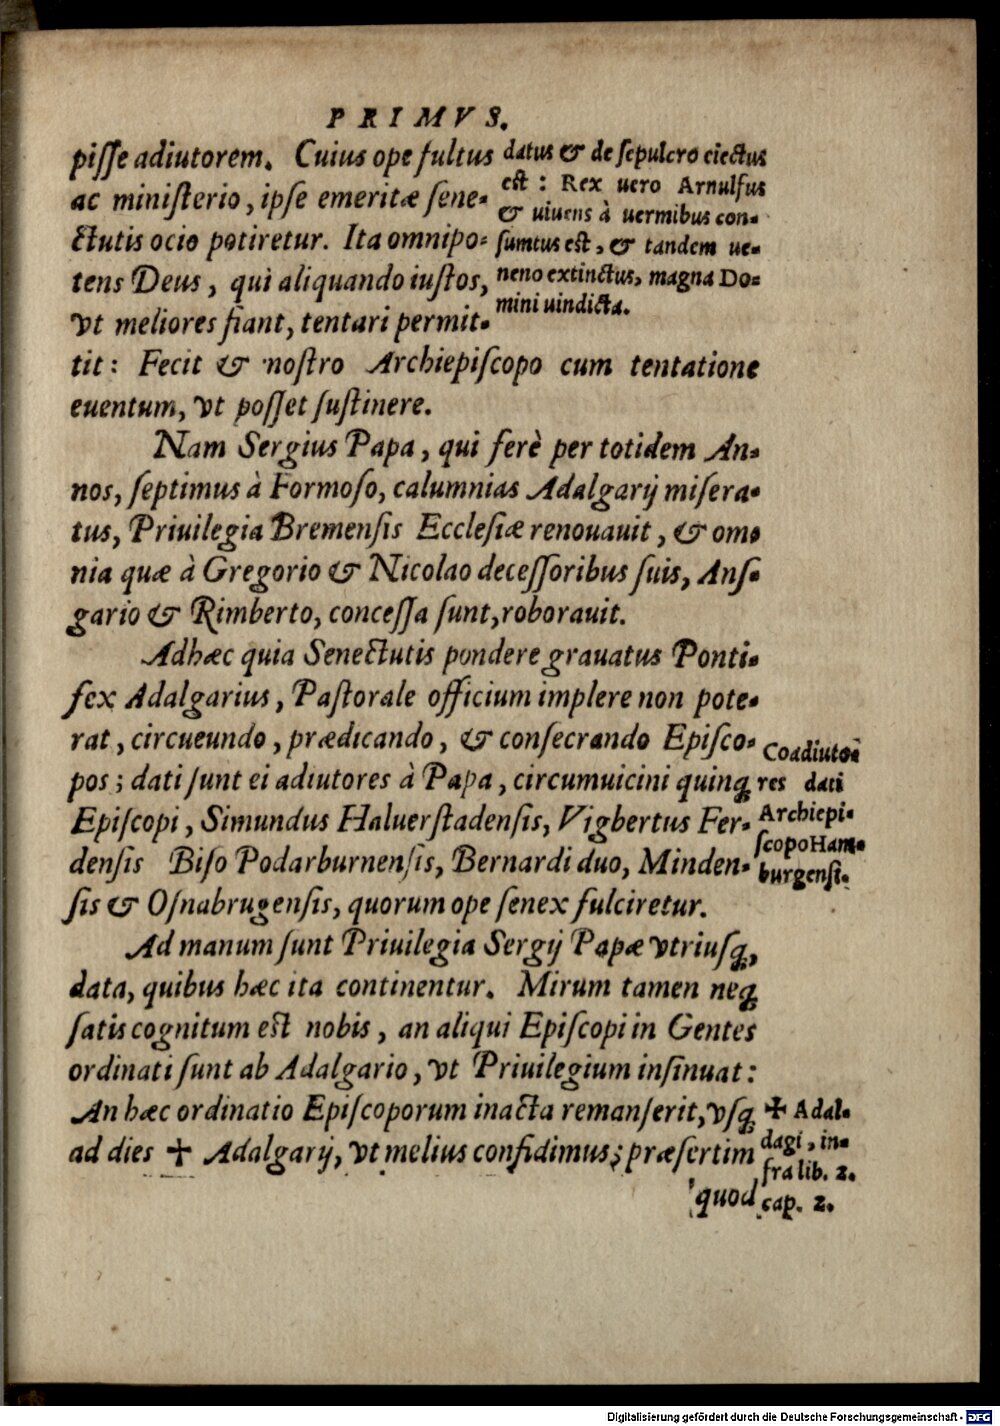 PRIMVS.
piſſe adiutorem. Cuius ope fultus
ac miniſterio, ipſe emeritæ ſene-
ctutis ocio potiretur. Ita omnipo-
tens Deus, qui aliquando iuſtos,
vt meliores fiant, tentari permit-
tit: Fecit & noſtro Archiepiſcopo cum tentatione
euentum, vt poſſet ſuſtinere.
datus & de ſepulcro eiectus
eſt: Rex uero Arnulfus
& uiuens à uermibus con-
ſumtus eſt, & tandem ue-
neno extinctus, magna Do-
mini uindicta.
Nam Sergius Papa, qui ferè per totidem An-
nos, ſeptimus à Formoſo, calumnias Adalgarij miſera-
tus, Priuilegia Bremenſis Eccleſiæ renouauit, & om-
nia quæ à Gregorio & Nicolao deceſſoribus ſuis, Anſ-
gario & Rimberto, conceſſa ſunt, roborauit.
Adhæc quia Senectutis pondere grauatus Ponti-
fex Adalgarius, Paſtorale officium implere non pote-
rat, circueundo, prædicando, & conſecrando Epiſco-
pos; dati ſunt ei adiutores à Papa, circumuicini quinq;
Epiſcopi, Simundus Haluerſtadenſis, Vigbertus Fer-
denſis Biſo Podarburnenſis, Bernardi duo, Minden-
ſis & Oſnabrugenſis, quorum ope ſenex fulciretur.
Coadiuto-
res dati
Archiepi-
ſcopo Ham-
burgenſi.
Ad manum ſunt Priuilegia Sergij Papæ vtriuſq;
data, quibus hæc ita continentur. Mirum tamen neq;
ſatis cognitum eſt nobis, an aliqui Epiſcopi in Gentes
ordinati ſunt ab Adalgario, vt Priuilegium inſinuat:
An hæc ordinatio Epiſcoporum inacta remanſerit, vſq;
ad dies ✠ Adalgarij, vt melius confidimus; præſertim
✠ Adal-
dagi, in-
fra lib. 2.
cap. 2.
quod
Digitalisierung gefördert durch die Deutsche Forschungsgemeinschaft - DFG